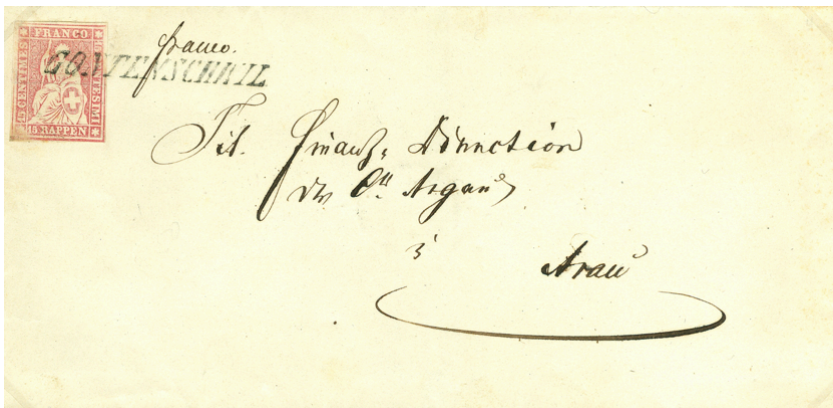 FRANCO
15 CENTIMES
CENTESIMI
15 RAPPEN
franco.
GONTENSCHWIL
Tit. Finanz-Direction
des Cts. Argau
Arau